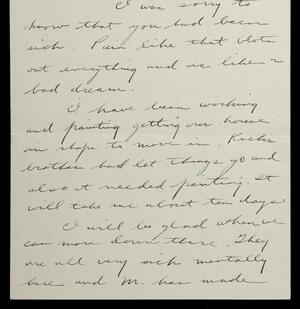 I was sorry to
know that you had been
sick. Pain like that blots
out everything and is like a
bad dream.
I have been working
and painting getting our house
in shape to move in.
brother had let things go and
also it needed painting. It
will take me about ten days
I will be glad when we
can move down there. They
are all very sick mentally
here and M. has made